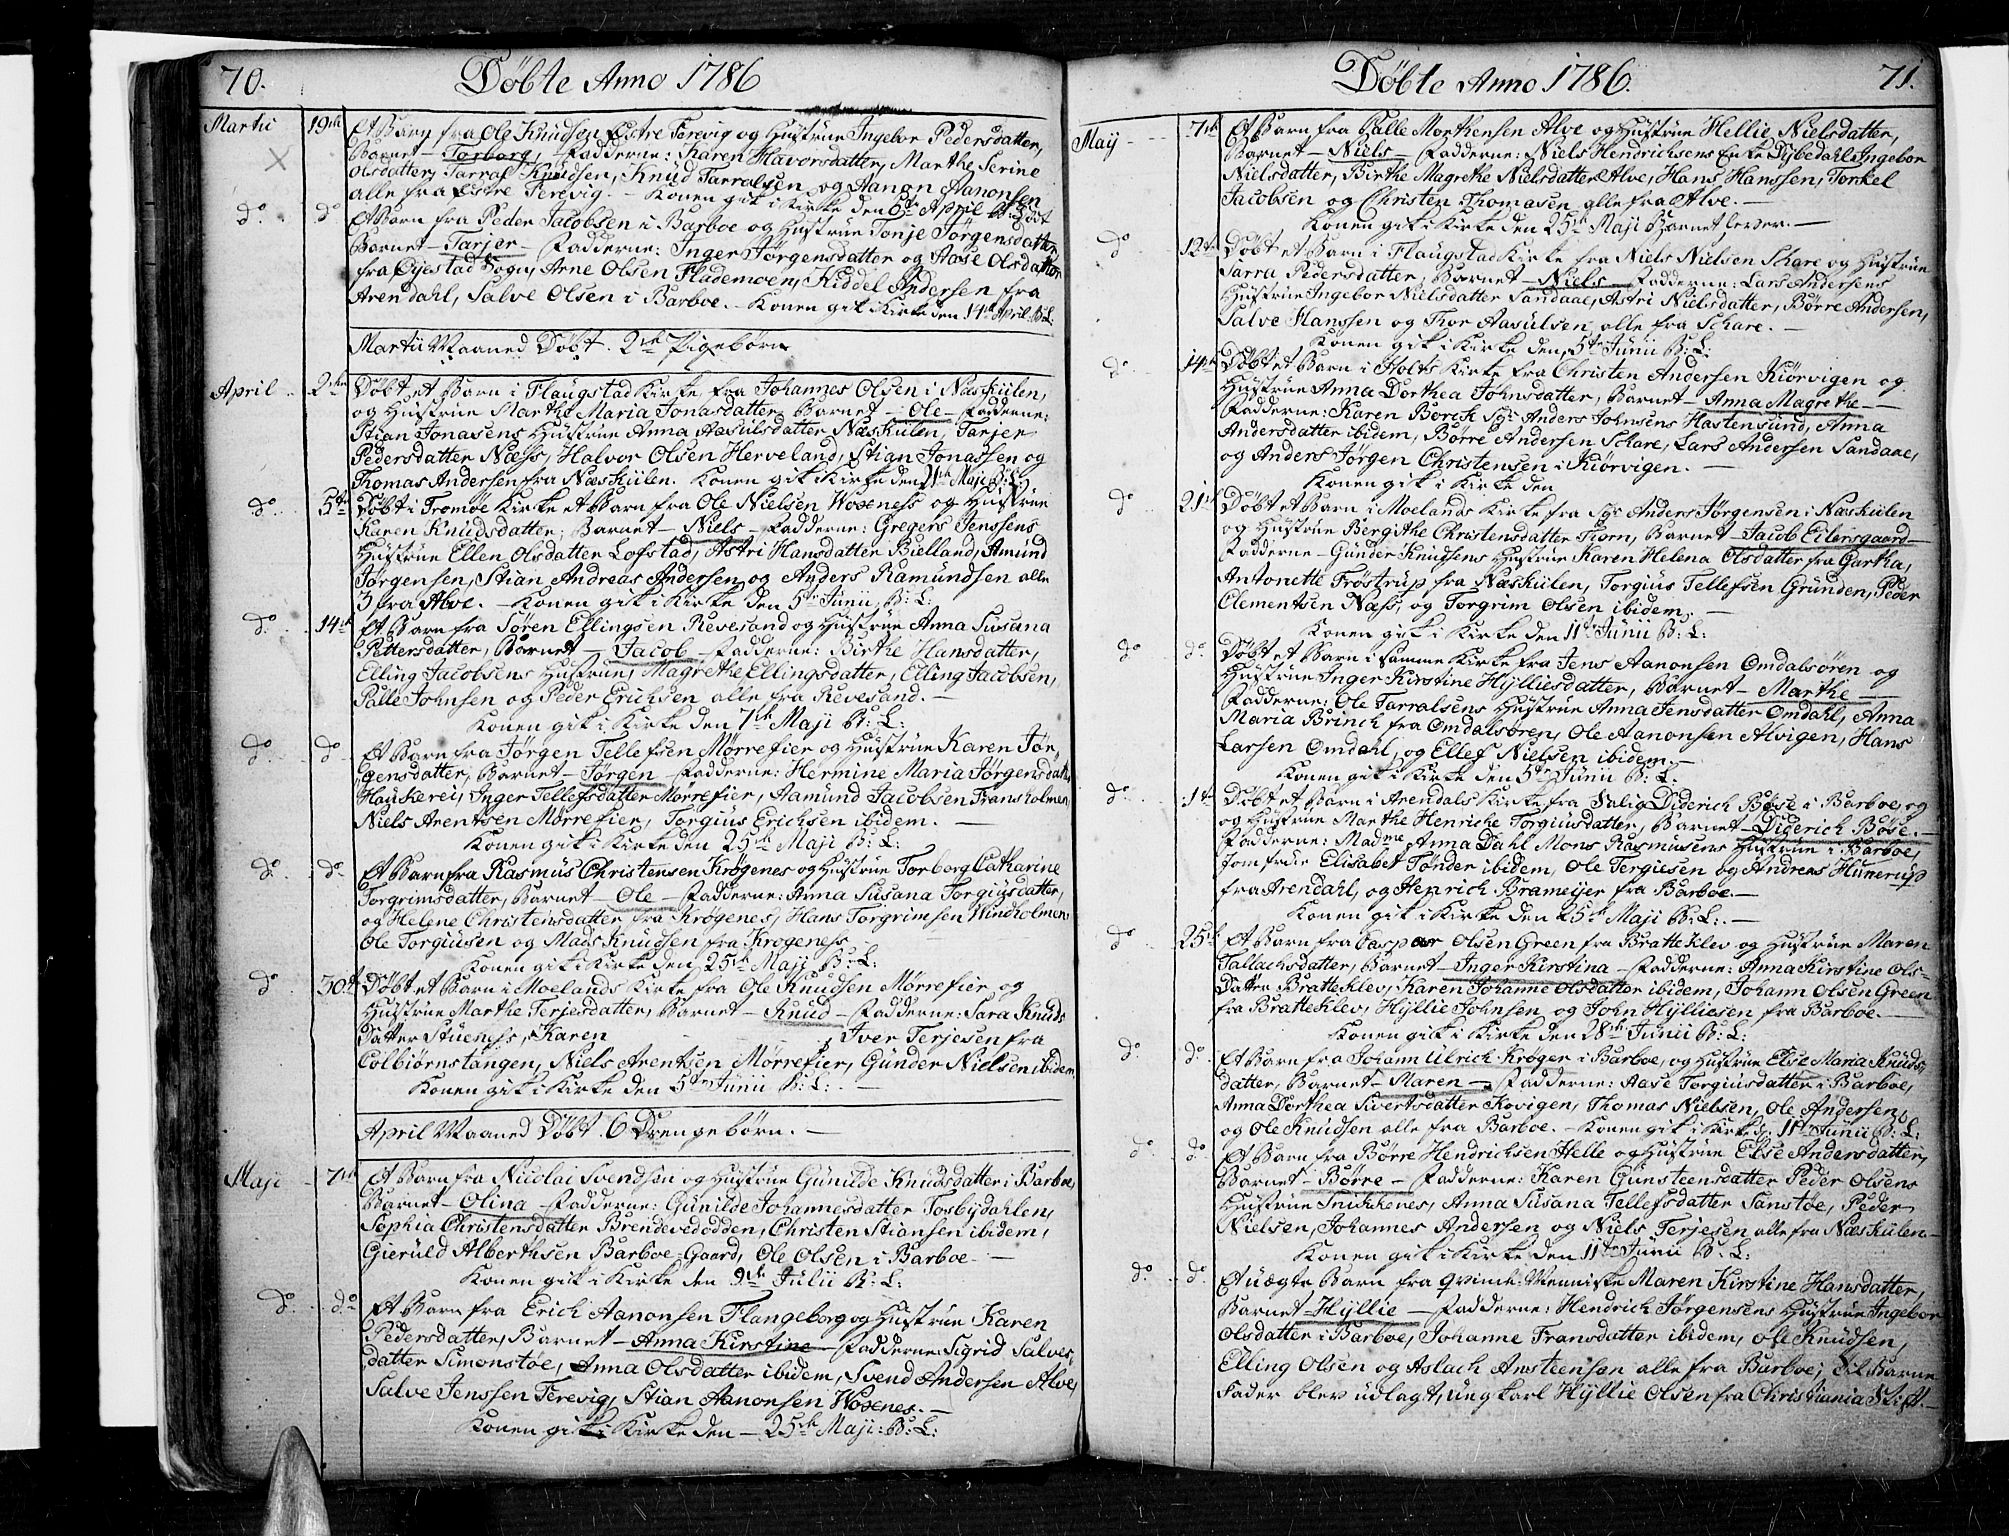 70. Døbte Anno 1786
Martii 19de Et Barn fra Ole Knudsen Østre Terevig og Hustrue Ingebor Pedersdatter,
Barnet – Torborg, – Fadderne: Karen Havorsdatter, Marthe Serine
Olsdatter, Tarral Knudsen, Knud Tarralsen og Aanon Aanonsen
alle fra Østre Terevig. – Konen gik i Kirke den April
do do Et Barn fra Peder Jacobsen i Barboe og Hustrue Tonje Jørgensdatter
Barnet – Tarjer – Fadderne: Inger Jørgensdatter og Aase Olsdatter
fra Øyestad Sogn, Arne Olsen Flademoen, Kiddel Andersen fra
Arendahl, Salve Olsen i Barboe. – Konen gik i Kirke den 14de April B: L:
Martii Maaned Døbt. 2de Pigebørn
April 2den Døbt et Barn i Flaugstad Kirke fra Johannes Olsen i Næskilen,
og Hustrue Marthe Maria Jonasdatter, Barnet – Ole – Fadderne:
Stian Jonasens Hustrue Anna Aasulsdatter Næskilen, Tarjer
Pedersdatter Næss, Halvor Olsen Herveland, Stian Jonassen og
Thomas Andersen fra Næskilen. Konen gik i Kirke den Maji B: L:
do 5te Døbt i Tromøe Kirke et Barn fra Ole Nielsen Woxeness og Hustrue
Karen Knudsdatter; Barnet – Niels – Fadderne: Gregers Jenssens
Hustrue Ellen Olsdatter Lofstad, Astri Hansdatter Bielland, Amund
Jørgensen, Stian Andreas Andersen og Anders Ramundsen alle
3 fra Alve. – Konen gik i Kirke den 5te Junii B: L:
do 14de Et Barn fra Søren Ellingsen Revesand og Hustrue Anna Susana
Pettersdatter, Barnet – Jacob – Fadderne: Birthe Hansdatter,
Elling Jacobsens Hustrue, Magrethe Ellingsdatter, Elling Jacobsen,
Palle Johnsen og Peder Erichsen alle fra Revesand. –
Konen gik i Kirke den 7de Maji B: L:
do do Et Barn fra Jørgen Tellefsen Mørrefier og Hustrue Karen Jør,
gensdatter, Barnet – Jørgen – Fadderne: Hermine Maria Jørgensdatter
Haukerei, Inger Tellefsdatter Mørrefier, Aamund Jacobsen Fransholmen,
Niels Arentsen Mørrefier, Torgius Erichsen ibidem. –
Konen gik i Kirke den 25de Maji B: L:
do do Et Barn fra Rasmus Christensen Krøgenes og Hustrue Torborg Catharine
Torgrimsdatter, Barnet – Ole – Fadderne: Anna Susana Torgiusdatter,
og Helene Christensdatter fra Krøgenes, Hans Torgrimsen Windholmen
Ole Torgiusen og Mads Knudsen fra Krogeness
Konen gik i Kirke den 25de Maji B: L:
do 30te Døbt et Barn i Moelands Kirke fra Ole Knudsen Mørrefier og
Hustrue Marthe Terjesdatter, Barnet – Knud – Fadderne: Sara Knuds
Datter Stueness, Karen , Iver Terjesen fra
Colbiørnstangen, Niels Arentsen Mørrefier, Gunder Nielsen ibidem
Konen gik i Kirke den 5te Junii B: L: –
April Maaned Døbt. 6 Drengebørn. –
Maji 7de Et Barn fra Nicolai Svendsen og Hustrue Gunilde Knudsdatter i Barboe,
Barnet – Olina – Fadderne: Gunilde Johannesdatter Tosbydahlen,
Sophia Christensdatter Brendevedodden, Christen Stiansen ibidem,
Gieruld Alberthsen Barboe-Gaard, Ole Olsen i Barboe –
Konen gik i Kirke den 9de Julii B: L:
do do Et Barn fra Erich Aanonsen Flangeborg og Hustrue Karen
Pedersdatter, Barnet – Anna Kirstine – Fadderne: Sigrid Salves,
datter Simonstøe, Anna Olsdatter ibidem, Svend Andersen Alve,
Salve Jenssen Terevig, Stian Aanonsen Woxenes. –
Konen gik i Kirke den – 25de Maji: B: L:
Døbte Anno 1786. 71.
Maij 7de Et Barn fra Palle Morthensen Alve og Hustrue Hellie Nielsdatter,
Barnet – Niels – Fadderne: Niels Hendrichsens Enke Dybedahl Ingebor
Nielsdatter, Birthe Magrethe Nielsdatter Alve, Hans Hanssen, Torkel
Jacobsen og Christen Thomasen alle fra Alve. –
Konen gik i Kirke den 25de Maji Barnet lever. –
do 12te Døbt et Barn i Flaugstad Kirke fra Niels Nielsen Schare og Hustrue
Sarra Pedersdatter, Barnet – Niels – Fadderne: Lars Andersens
Hustrue Ingebor Nielsdatter Sandaae, Astri Nielsdatter, Børre Andersen,
Salve Hanssen og Thor Aasulsen alle fra Schare. –
Konen gik i Kirke den 5te Junii B: L:
do 14de Døbt et Barn i Holts Kirke fra Christen Andersen Kiørvigen og
Hustrue Anna Dorthea Johnsdatter, Barnet – Anna Magrethe –
Fadderne: Karen Borck Sgr Anders Johnsens Hastensund, Anna
Andersdatter ibidem, Børre Andersen Schare, Lars Andersen Sandaae,
og Anders Jørgen Christensen i Kiørvigen. –
Konen gik i Kirke den
do 21de Døbt et Barn i Moelands Kirke fra Sgr Anders Jørgensen i Næskilen
og Hustrue Bergithe Christensdatter Tiorn, Barnet – Jacob Eilersgaard –
Fadderne – Gunder Knudsens Hustrue Karen Helena Olsdatter fra Gartha,
Antonette Frostrup fra Næskilen, Torgius Tellefsen Grunden, Peder
Clementsen Næss, og Torgrim Olsen ibidem. –
Konen gik i Kirke den 11te Junii B: L:
do do Døbt et Barn i samme Kirke fra Jens Aanonsen Omdalsøren og
Hustrue Inger Kirstine Hylliesdatter, Barnet – Marthe –
Fadderne: Ole Tarralsens Hustrue Anna Jensdatter Omdahl, Anna
Maria Brinch fra Omdalsøren, Ole Aanonsen Alvigen, Hans
Larsen Omdahl, og Ellef Nielsen ibidem –
Konen gik i Kirke den 5te Junii B: L:
do 1te Døbt et Barn i Arendals Kirke fra Salig Diderich Bøse i Barboe, og
og Hustrue Marthe Henriche Torgiusdatter, Barnet – Diderich Bøse. –
Fadderne: Madme Anna Dahl Mons Rasmusens Hustrue i Barboe,
Jomfrue Elisabet Tønder ibidem, Ole Tergiesen og Andreas Hunerup
fra Arendahl, og Henrich Brameijer fra Barboe –
Konen gik i Kirke den 25de Maji B: L:. –
do 25de Et Barn fra Caspar Olsen Green fra Bratteklev og Hustrue Maren
Tallachsdatter, Barnet – Inger Kirstina – Fadderne: Anna Kirstine Ols-
Datter Bratteklev, Karen Johanne Olsdatter ibidem, Johann Olsen Green
fra Bratteklev, Hyllie Johnsen og John Hylliesen fra Barboe. –
Konen gik i Kirke den 28de Junii B: L:
do do Et Barn fra Johann Ulrich Krøger i Barboe, og Hustrue Else Maria Knuds,
datter, Barnet – Maren – Fadderne: Aase Torgiusdatter i Barboe,
Anna Dorthea Sivertsdatter Kovigen, Thomas Nielsen, Ole Andersen,
og Ole Knudsen alle fra Barboe. – Konen gik i Kirke d. 11te Junii B: L:
do do Et Barn fra Børre Hendrichsen Helle og Hustrue Else Andersdatter,
Barnet – Børre – Fadderne: Karen Gunsteensdatter Peder Olsens
Hustrue Snikkenes, Anna Susana Tellefsdatter Sanstøe, Peder
Nielsen, Johannes Andersen og Niels Terjesen alle fra Næskilen –
Konen gik i Kirke den 11te Junii B: L:
do do Et uægte Barn fra Qvinde-Menniske Maren Kirstine Hansdatter,
Barnet – Hyllie – Fadderne: Hendrich Jørgensens Hustrue Ingebor
Olsdatter i Barboe, Johanne Fransdatter ibidem, Ole Knudsen,
Elling Olsen og Aslach Amsteensen alle fra Barboe; til Barne
Fader blev udlagt, ung karl Hyllie Olsen fra Christiania Stift. –